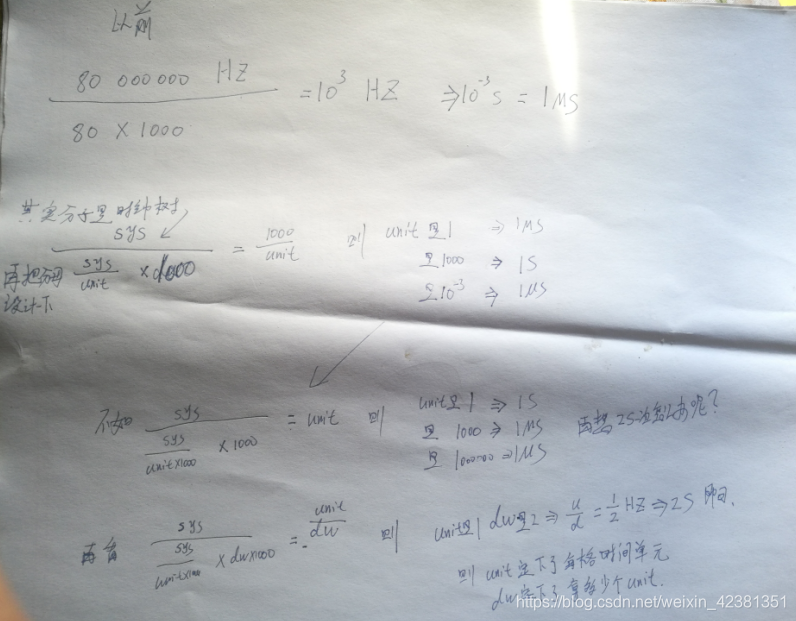 以前
80 000000 HZ
80 X 1000
=10³ HZ ⇒10⁻³S = 1MS
其实分子是时钟树
sys
sys
unit
x 1000
= 1000
unit
则 unit 是1 ⇒ 1MS
是1000 ⇒ 1S
是10⁻³ ⇒ 1MS
再把分母
设计下
不如 sys
sys
unit×1000
× 1000
= unit 则 unit是1 ⇒ 1S
是 1000 ⇒ 1MS
是 1000000 ⇒1MS
再想 2S 怎么办呢?
再有 sys
sys
unit×1000
× dw×1000
= unit
dw
则 unit是1 dw是2 ⇒ u/d = 1/2 HZ ⇒ 2S 即可.
则 unit定下了 时间单元
dw定下了 多少个unit.
https://blog.csdn.net/weixin_42381351